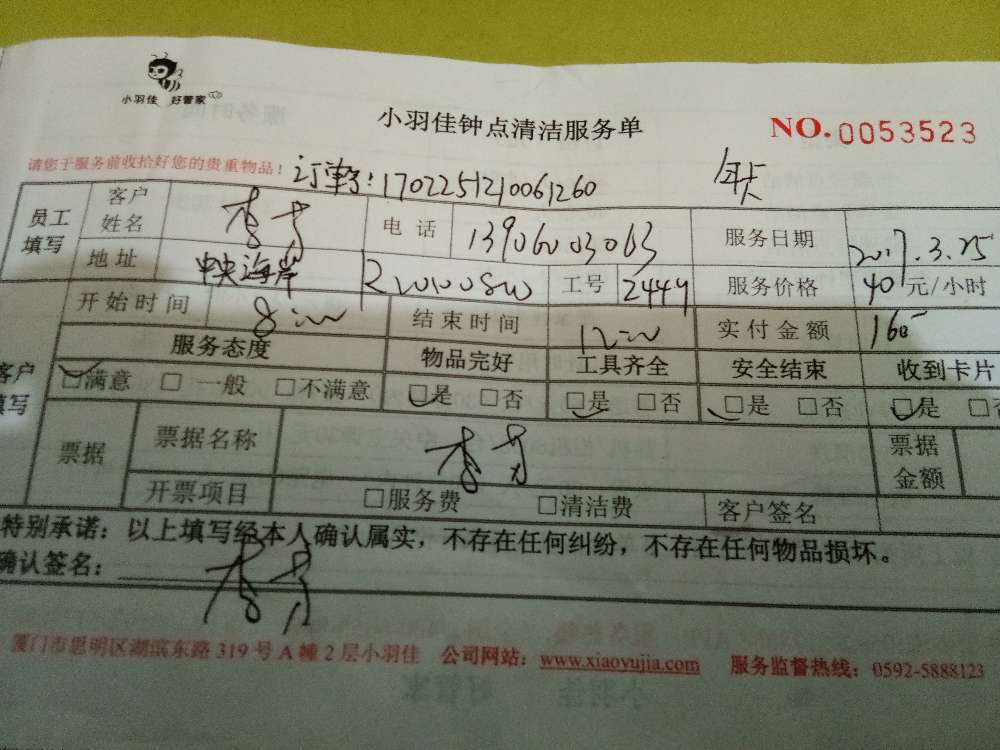 小羽佳 好管家
小羽佳钟点清洁服务单
NO.0053523
请您于服务前收拾好您的贵重物品！
订单号：1702251210061260
年卡
员工填写 客户姓名 电话 13906003063 服务日期 2017.3.25
地址 中央海岸 工号 2449 服务价格 40元/小时
开始时间 8:00 结束时间 12:00 实付金额 160
服务态度 物品完好 工具齐全 安全结束 收到卡片
客户填写 □满意 □一般 □不满意 □是 □否 □是 □否 □是 □否 □是 □否
票据 票据名称 票据金额
开票项目 □服务费 □清洁费 客户签名
特别承诺：以上填写经本人确认属实，不存在任何纠纷，不存在任何物品损坏。
确认签名：
厦门市思明区湖滨东路319号A幢2层小羽佳 公司网站：www.xiaoyujia.com 服务监督热线：0592-5888123